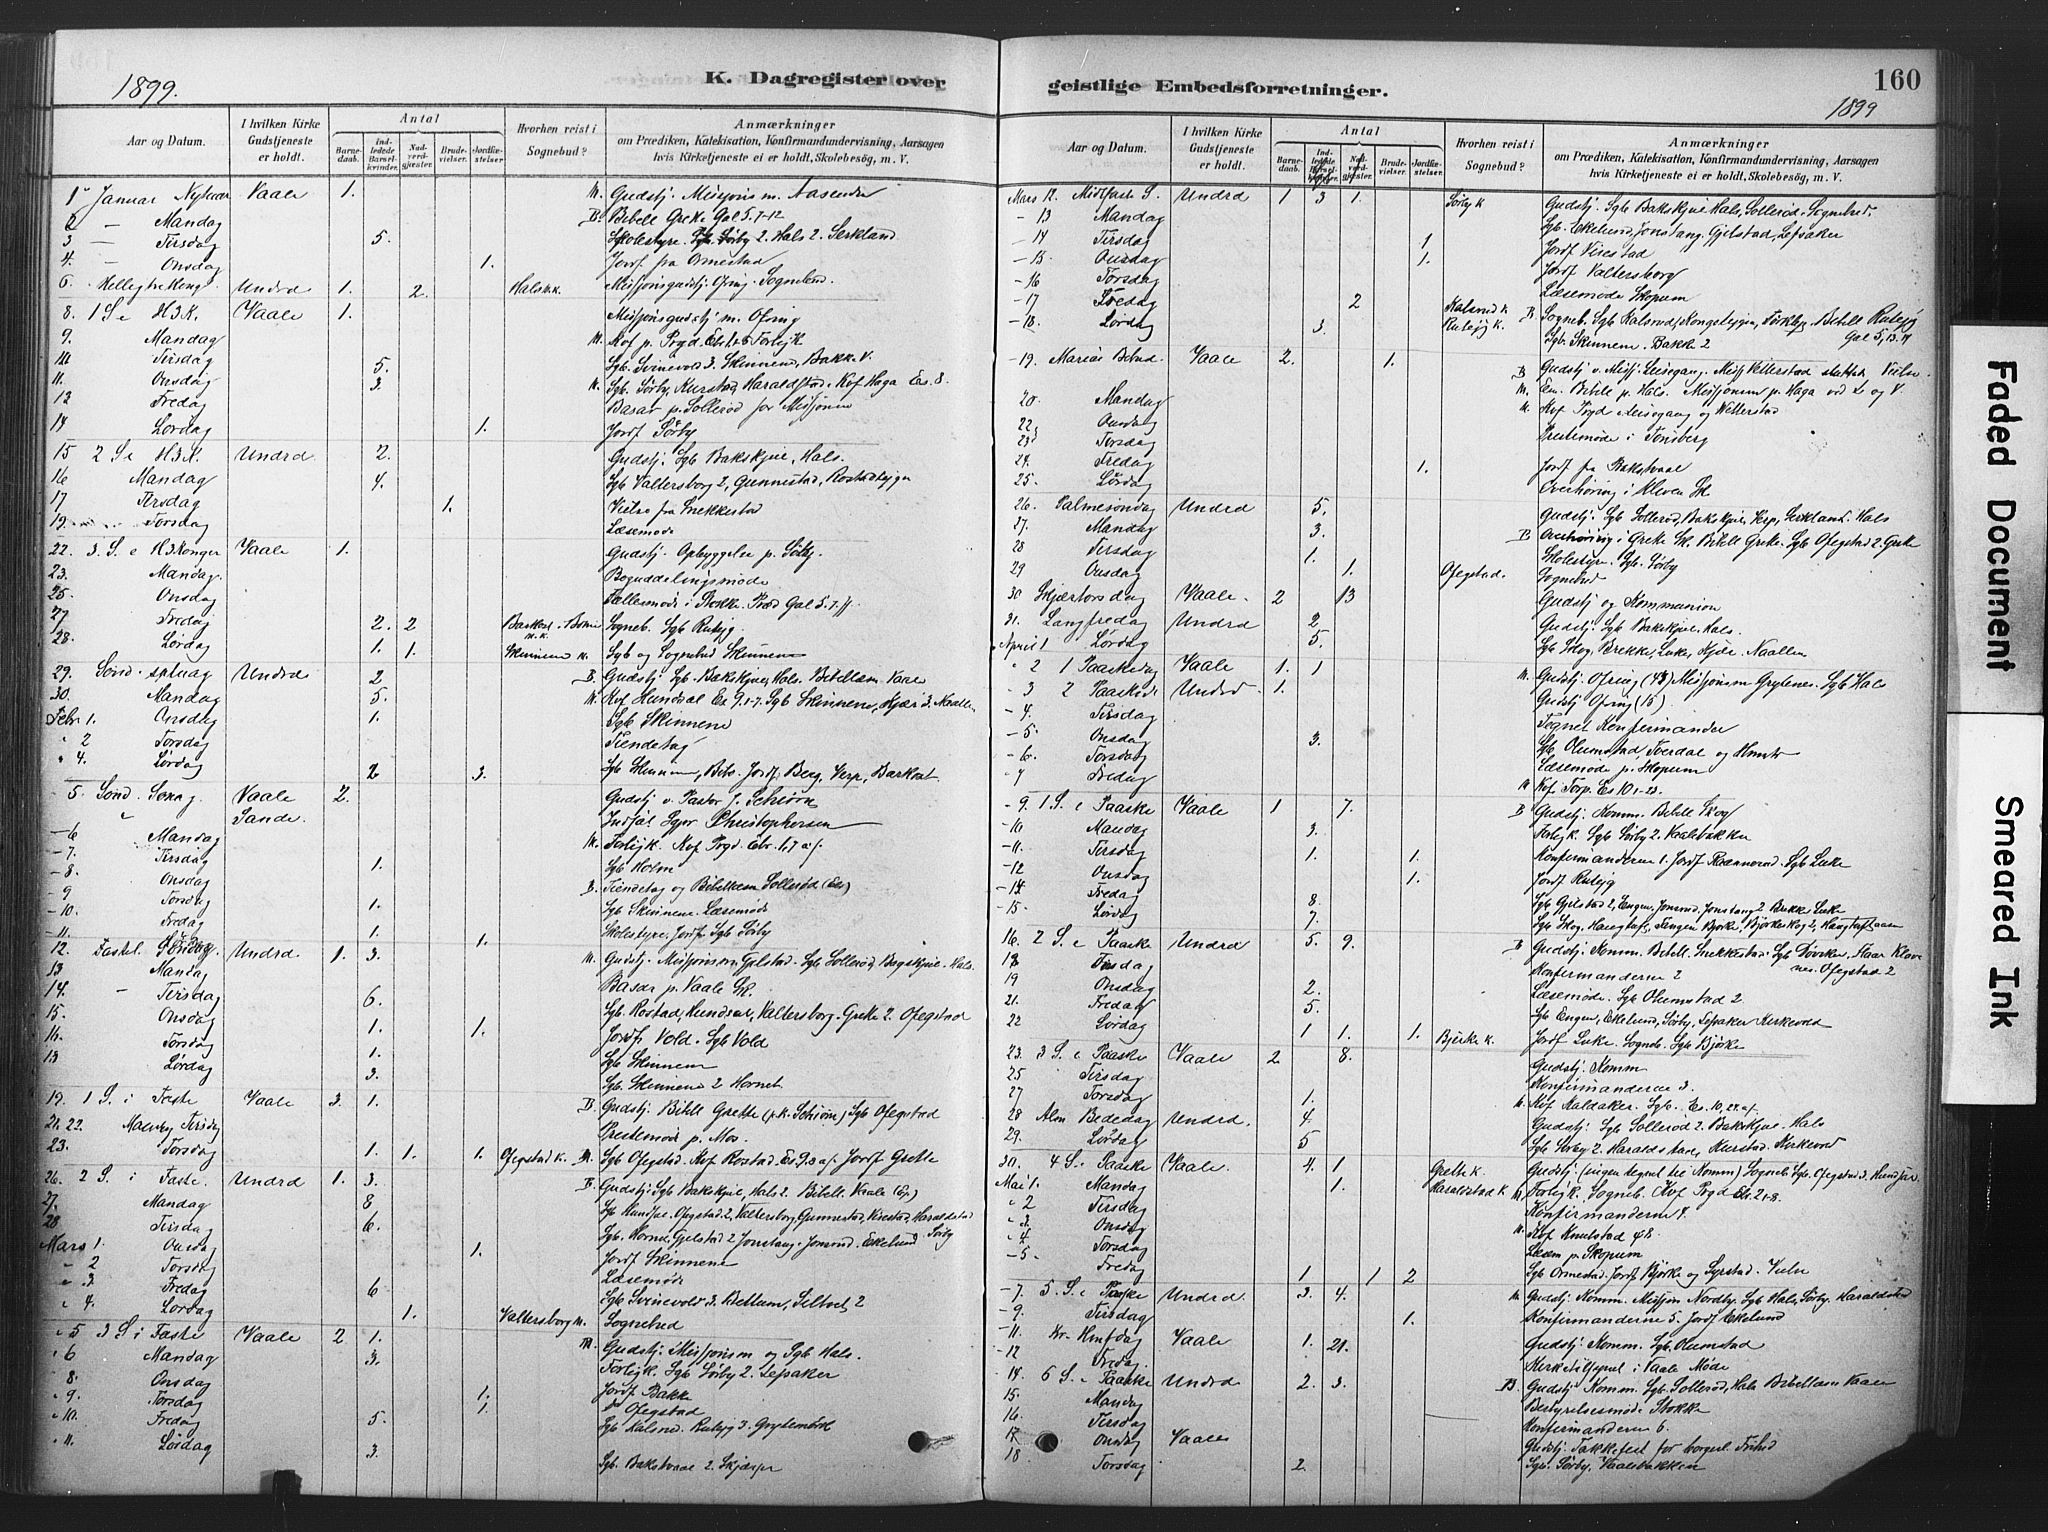 1899.
K. Dagregister over
geistlige Embedsforretninger.
160
1899
Aar og Datum.
I hvilken Kirke Gudstjeneste er holdt.
Antal
Barnedaab.
Indledede Barselkvinder.
Nadverdgjæster.
Brudevielser.
Jordfæstelser
Hvorhen reist i Sognebud?
Anmærkninger
om Prædiken, Katekisation, Konfirmandundervisning, Aarsagen
hvis Kirketjeneste ei er holdt, Skolebesøg, m. V.
1 Januar Nytaar Vaale 1. M. Gudstj. Misjons m. Aasenden
2 – Mandag B. Bibell Greke Gal 5.1-12
3 – Tirsdag 5. Skolestyre. Sgb Sørby 2. Hals 2. Serkland
4. – Onsdag 1. Jordf fra Ormestad
6. Helligtrekong. Undrd 1. 2. Hals m.k. Misjonsgudstj. Ofring. Sognebud.
8. 1 S e H3K. Vaale 1. Misjonsgudstj m. Ofring
9. Mandag M. Kof p. Prgd. Forlijk
10 Tirsdag 5. Sgb. Svinevold 3. Skinnene, Bakke V.
11. Onsdag 3. M. Sgb. Sørby, Kurstad, Haraldstad. Kof Haga Es. 8.
12 Fredag Basar p. Sollerød for Misjonen
14 Lørdag 1. Jordf Sørby
15 2 S e H3K. Undrd 2. Gudstj. Sgb Bakskjue, Hals.
16 Mandag 4. Sgb Valtersborg 2, Gunnestad, Rostad
17 Tirsdag 1. Vielse fra Snekkestad
19. Torsdag Læsemøde
22. 3 S. e H3konger Vaale 1. Gudstj. Opbyggelse p. Sørby.
23. Mandag. Boguddelingsmøde
25. Onsdag Fællesmøde i Stokke. Præd Gal 5.1. ff.
27 Fredag 2. 2 Sogneb. Sgb Rutejg.
28. Lørdag 1. 1. Skinnene k. Sgb og Sognebud Skinnene
29. Sønd. sptuag Undrd 2 B. Gudstj Sgb. Bakskjue, Hals. Bibellæsn. Vaale
30. Mandag 5. M. Kof Hundsal Es 9.1-7. Sgb Skinnene, Kjær 3. Naallen
Febr 1. Onsdag 1. Sgb Skinnene
2 Torsdag Tiendetag
4. Lørdag 2 3. Sgb Skinnene, Jordf. Berg, Verp, Barkost
5. Sønd. Sexag. Vaale 2. Gudstj v. Pastor J. Schiörn
Sande. Indsat Sgpr Christophersen
6 Mandag M. Forlijk. Kof Prgd. Ebr. 1,7 af.
7. Tirsdag 1. Sgb Holm
8. Onsdag B. Tiendetag og Bibellæsn Sollerød (Es)
9 Torsdag 1. Sgb Skinnene. Læsemøde
10. Fredag Skolestyre. Jordf Sgb Sørby
11. 1. 1.
12. Fastel. Søndag Undrd 1. 3. M. Gudstj. Misjonsm Gjelstad. Sgb Sollerød, Bagskjue. Hals.
13 Mandag Basar p. Vaale Sk.
14. Tirsdag 6. Sgb. Rostad, Hundsal, Valtersborg. Greke 2. Ofegstad
15. Onsdag 1. 1. Jordf. Vold. Sgb Vold
16. Torsdag 1. Sgb Skinnene
18 Lørdag 3. Sgb. Skinnene 2 Hornet.
19. 1 S. i Faste Vaale 3. 1. B. Gudstj. Bibell Grette (p.k. Schiörn) Sgb Ofegstad
21. 22. Mandag Tirsdag Prestemøde p. Mos.
23. Torsdag 1. 1. 1. Ofegstad k. M. Sgb Ofegstad. Kof Rostad. Es 9.3 af. Jordf Grette
26. 2 S. i Faste. Undrd 1. 3. B. Gudstj. Sgb Bakskjue, Hals 2. Bibell Vaale (Es)
27. Mandag 8 Sgb Hundsal. Ofegstad 2, Valtersborg, Gunnestad, Virestad, Haraldstad
28 Tirsdag 6. Sgb. Hornet, Gjelstad 2 Jonstang. Jonsrud. Ekelund Sørby
Mars 1. Onsdag 1. Jordf Skinnene
2 Torsdag Læsemøde
3. Fredag 6 Sgb Svinevold 3. Bettum, Seltvet 2
4. Lørdag 1. Valtersborg m. Sognebud
5 3 S i Faste Vaale 2 1. M. Gudstj. Misjonsm og Sgb Hals.
6 Mandag 3. Forlijk. Sgb Sørby 2. Lefsaker
8. Onsdag 1. Jordf Bakke
9. Torsdag 1. Ofegstad
10. Fredag 5. Sgb Kalsrud. Rutejg 3. Grytemöhl
11. Lørdag 3. Sgb. Bakstvaal 2. Skjæsper
Aar og Datum.
I hvilken Kirke Gudstjeneste er holdt.
Antal
Barnedaab.
Nadverdgjæster.
Brudevielser.
Jordfæstelser
Hvorhen reist i Sognebud?
Anmærkninger
om Prædiken, Katekisation, Konfirmandundervisning, Aarsagen
hvis Kirketjeneste ei er holdt, Skolebesøg, m. V.
Mars 12. Midtfaste S. Undrd 1 3 1. Sørby k Gudstj. Sgb Bakskjue Hals, Sollerød. Sognebud.
13 Mandag Sgb. Ekelund, Jonstang. Gjelstad, Lefsaker
14 Tirsdag 1 Jordf Virestad
15. Onsdag 1. Jordf Valtersborg
16 Torsdag Læsemøde Skopum
17 Fredag 2 Kalsrud k B. Sogneb. Sgb Kalsrud, Kongsteigen, Bibell Rutejg
18. Lørdag 3. Rutejg k. Sgb. Skinnene. Bakke 2 Gal 5, 13. ff
19. Mariæ Bebud. Vaale 2. 1. B Gudstj v. Misj. Leisegang. Misj Vetterstad Vielse.
M. Em. Bibell p. Hals. Misjonsm p. Haga ved L og V.
20. Mandag M. Kof Prgd Leisegang og Vetterstad
22. Onsdag Prestemøde i Tønsberg
23 Torsdag
24. Fredag 1. Jordf fra Bakstvaal
25. Lørdag Overhøring i Kleven Sk
26. Palmesøndag Undrd 5. Gudstj. Sgb Sollerød, Bakskjue, Verp, Serkland. Hals
27. Mandag 3. B Overhøring i Greke Sk. Bibell Greke. Sgb Ofegstad 2. Greke
28 Tirsdag 1. Skolestyre. Sgb. Sørby
29 Onsdag 1. Ofegstad. Sognebud
30 Skjærtorsdag Vaale. 2 13 Gudstj og Kommunion
31. Langfredag Undrd 2 Gudstj. Sgb Bakskjue. Hals.
April 1 Lørdag 5. Sgb Skog, Brekke, Luke, Kjær. Naallen
2 1 Paaskedag Vaale 1. 1 M. Gudstj. Ofring (43) Misjonsm Grytenes. Sgb Hals
3 2 Paaskedag Undrd 1. Gudstj Ofring (16)
4. Tirsdag Tegnet Konfirmander
5. Onsdag 3. Sgb Olumstad, Tverdal og
6. Torsdag Læsemøde p. Skopum
7 Fredag M Kof. Torp. Es 10 1-23.
9. 1 S. e Paaske Vaale 1 7. B Gudstj. Komm. Bibell Skog
10 Mandag 3. Forlijk. Sgb Sørby 2. Vaalebakken
11. Tirsdag 1. 1. Konfirmanderne 1. Jordf Rønnerud. Sgb Luke
12 Onsdag 1. Jordf Rutejg
14 Fredag 8. Sgb Gjelstad 2, Engen, Jonsrud, Jonstang 2 Brekke Luke
15. Lørdag 7. Sgb Skog. Haugtuft, Tengen Bjørke, Bjørkeskog 2, Haugtuft
16. 2 S. e Paaske Undrd 5. 9. B Gudstj. Komm. Bibell. Snekkestad. Sgb Døviken, Haar Klavenes. Ofegstad 2
18 Tirsdag Konfirmanderne 2
19 Onsdag 2. Læsemøde. Sgb Olumstad 2
21. Fredag 5. Sgb Engen, Ekelund, Sørby, Lefsaker Kirkevold
22 Lørdag 1 1. 1. Bjørke k. Jordf Luke. Sogneb. Sgb Bjørke
23. 3 S. e Paaske Vaale 2 8. Gudstj. Komm
25 Tirsdag Konfirmanderne 3.
27 Torsdag 1. M. Kof Kaldaker. Sgb. Es. 10, 27. af.
28 Alm Bededag Undrd. 4. Gudstj. Sgb Sollerød 2. Bakskjue. Hals
29. Lørdag 5 Sgb Sørby 2. Haraldstad, Kurstad, Kirkevold
30. 4 S. e Paaske Vaale. 4. 1 Grette k. Gudstj. (ingen tegnet til Komm) Sogneb. Sgb. Ofegstad 3. Hundsal
Mai 1. Mandag 1. Haraldstad k. M. Forlijk. Sogneb. Kof Prgd Eb. 2 1-8.
2 Tirsdag Konfirmanderne 4.
3. Onsdag M. Kof Knulstad
4 Torsdag Læsem p. Skopum
5. Fredag 1 1 2 Sgb Ormestad. Jordf Bjørke og Syrstad. Vielse
7. 5. S. e Paaske Undrd. 3. 4. M. Gudstj. Komm. Misjon Nordby. Sgb Hals, Sørby. Haraldstad
9. Tirsdag 1. Konfirmanderne 5. Jordf Ekelund
11. Kr. Hmfdag Vaale 1. 21. Gudstj. Komm. Sgb. Olumstad
12 Fredag. Kirketilsynet i Vaale Møde
14 6 S. e Paaske Undrd 2. 3. B. Gudstj. Komm. Sgb. Sollerød, Hals Bibellæsn. Vaale
15. Mandag Bestyrelsesmøde Stokke
16. Tirsdag Konfirmanderne 6.
17 Onsdag Vaale Gudstj. Takkefest for borgerl. Frihed
18 Torsdag 2. Sgb. Sørby. Vaalebakken
Faded Document
Smeared Ink